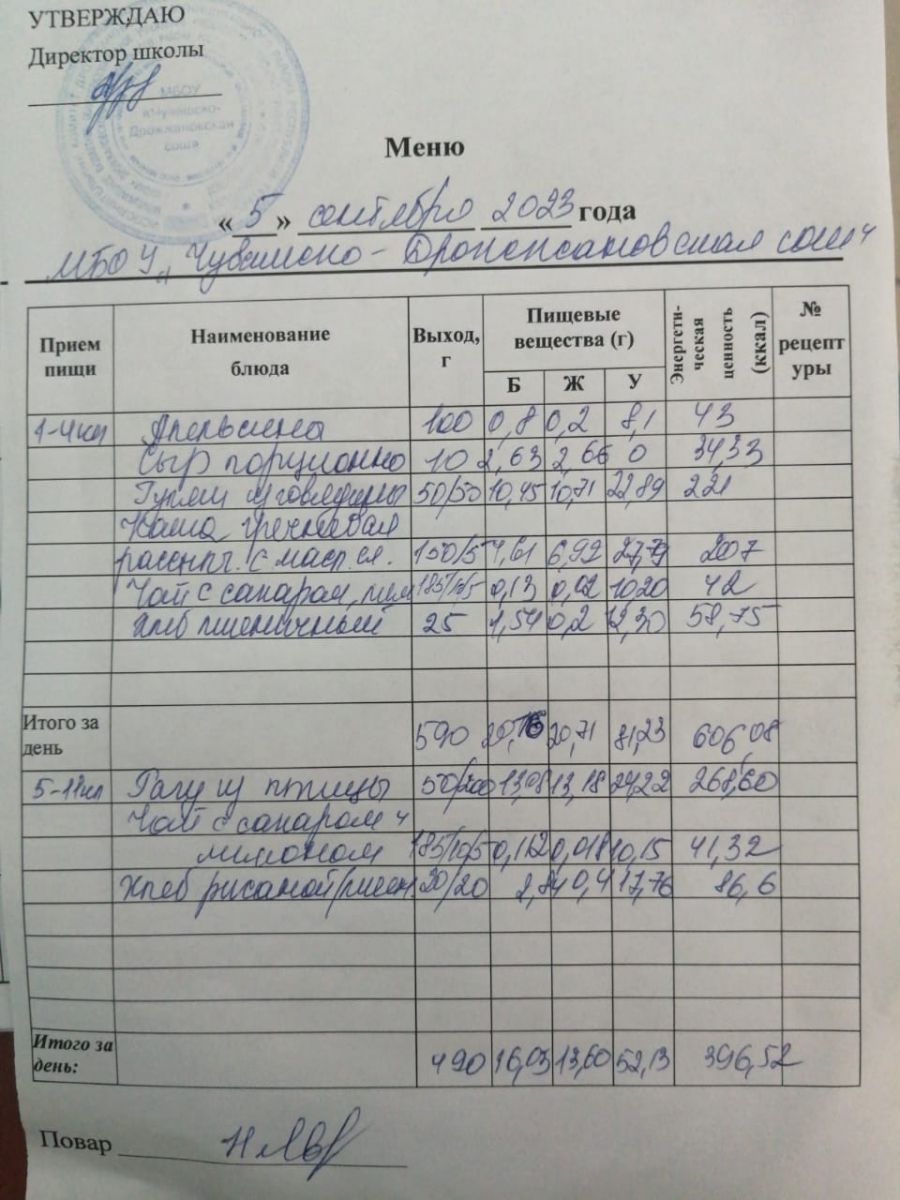 УТВЕРЖДАЮ
Директор школы
МБОУ
«Чувашско-
Дрожжановская
сош»
Меню
« 5 » сентября 2023 года
МБОУ „Чувашско - Дрожжановская сош"
Прием пищи Наименование блюда Выход, г Пищевые вещества (г) Энергети-ческая ценность (ккал) № рецептуры
Б Ж У
1-4 кл Апельсина 100 0,8 0,2 8,1 43
Сыр порционно 10 2,63 2,66 0 34,33
Гуляш из говядины 50/50 10,45 10,71 22,89 221
Каша гречневая
рассып. с масл. сл. 150/5 4,61 6,92 27,79 207
Чай с сахаром, лим 185/10/5 0,13 0,02 10,20 42
Хлеб пшеничный 25 1,54 0,2 12,30 58,75
Итого за день 590 20,71 81,23 606,08
5-11 кл Рагу из птицы 50/200 13,08 13,18 24,22 268,60
Чай с сахаром и
лимоном 185/10/5 0,112 0,018 10,15 41,32
Хлеб ржаной/пшен. 20/20 2,84 0,4 17,76 86,6
Итого за день: 490 16,03 13,60 52,13 396,52
Повар